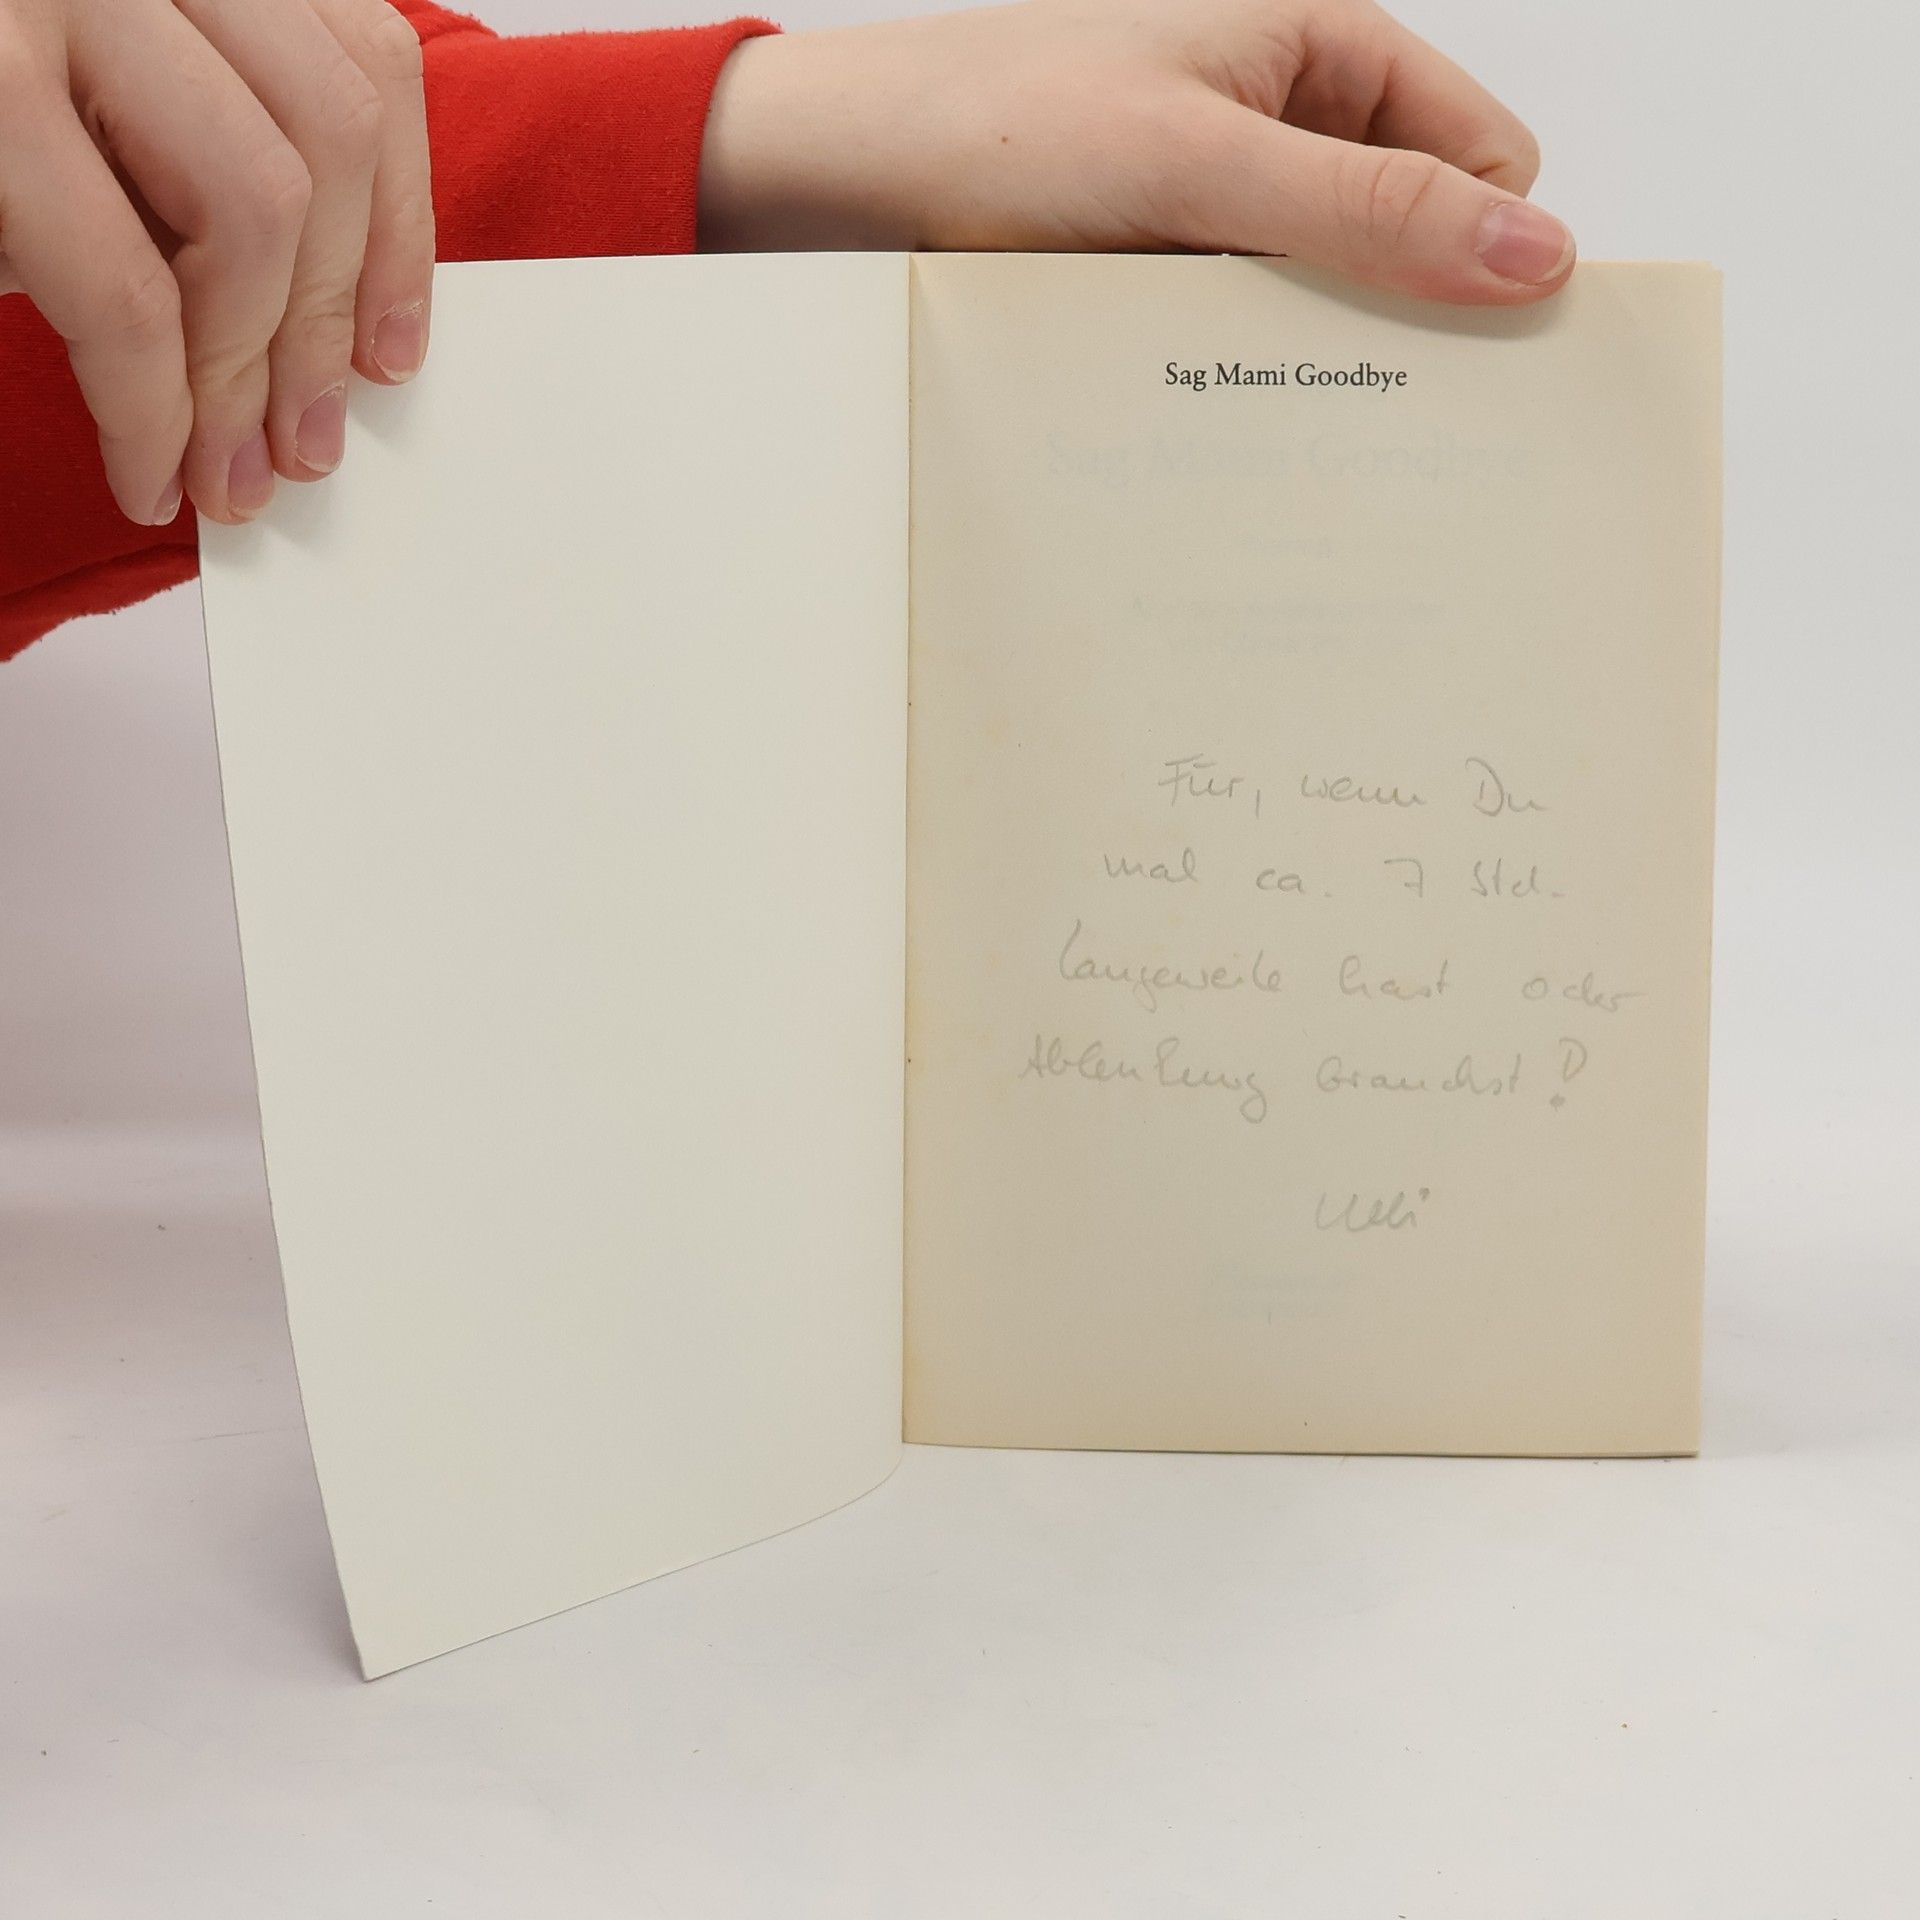 Sag Mami Goodbye
Sag Mami Goodbye
Für, wenn Du
mal ca. 7 Std.
Langeweile hast oder
Ablenkung brauchst!